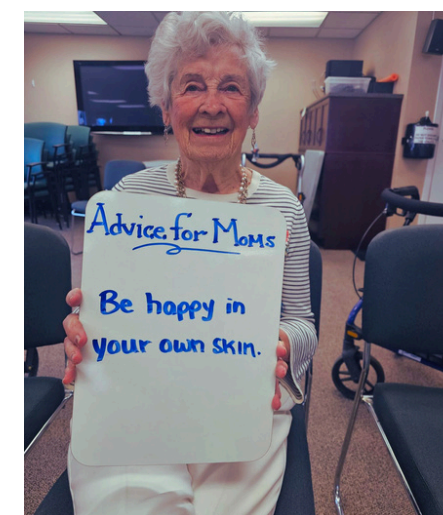 Advice for Moms
Be happy in
your own skin.